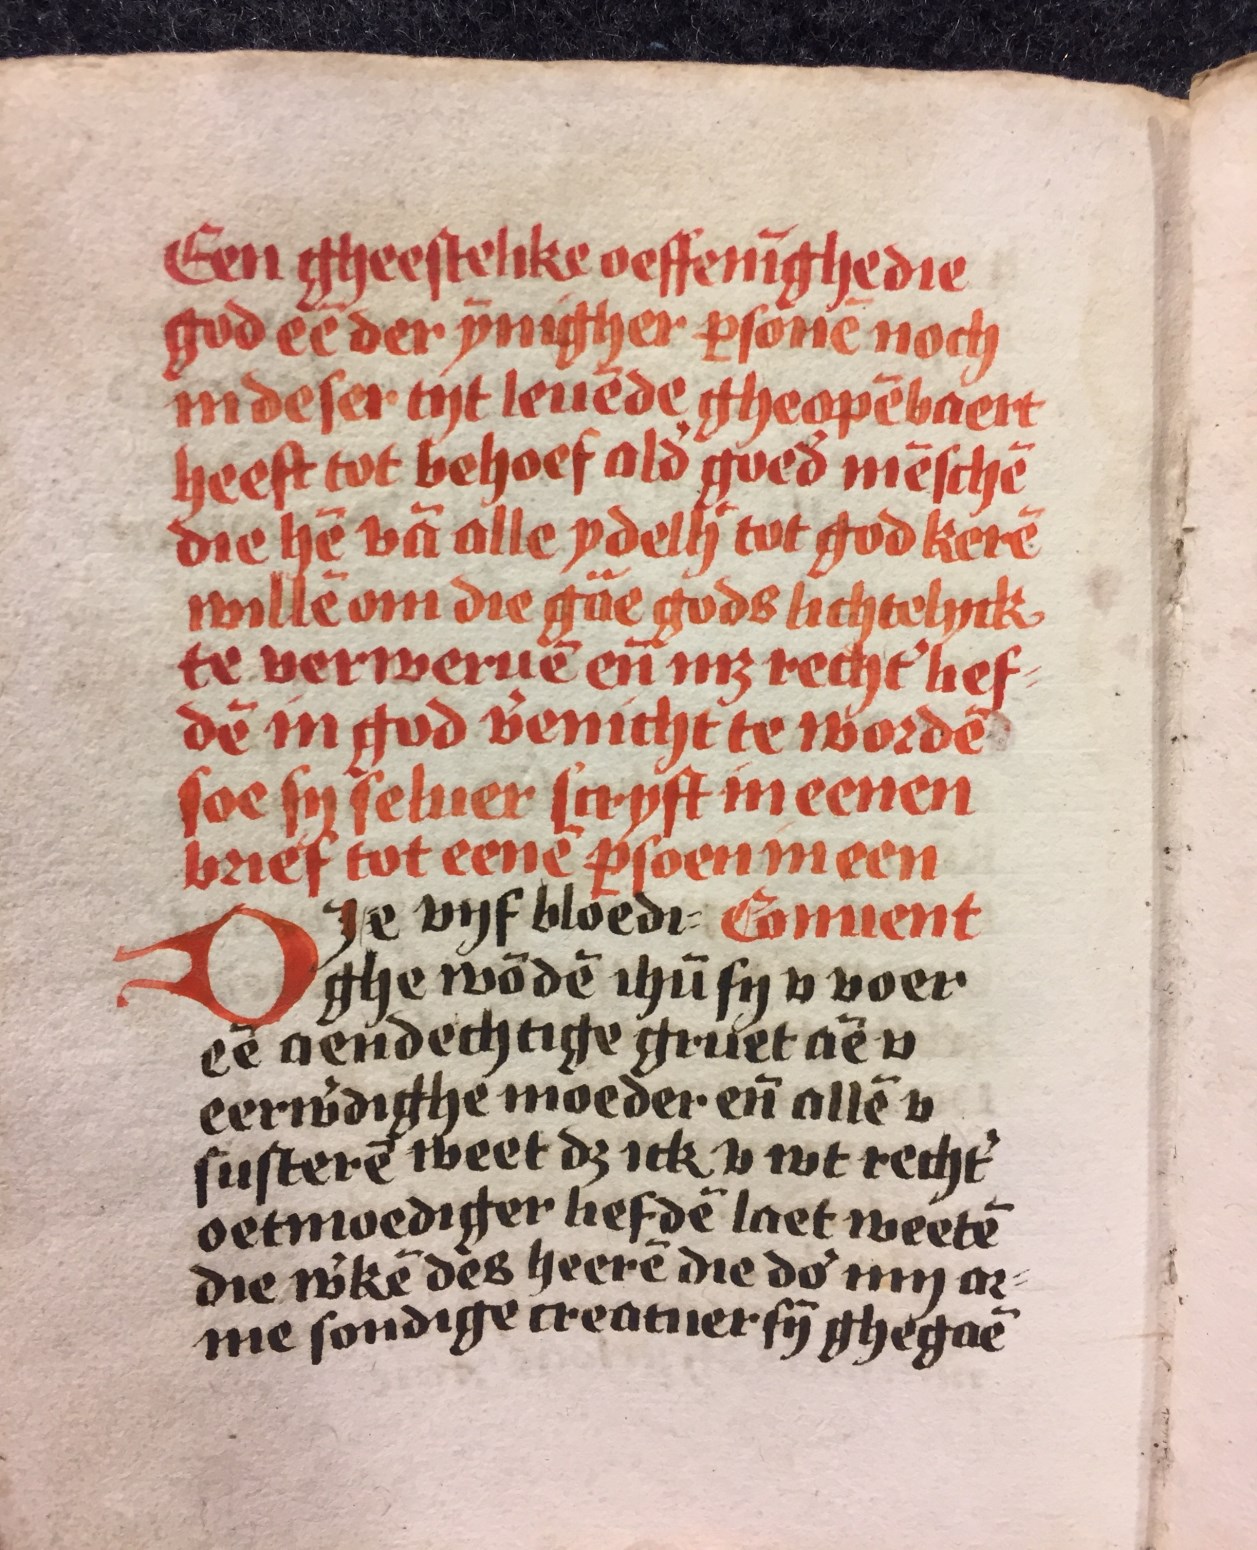 Een gheestelike oeffenīghe die
god eē der ȳnigher ꝑsonē noch
in deser tijt leuēde gheopēbaert
heeft tot behoef ald' goed' mēschē
die hē vā alle ydelh' tot god kerē
willē om die gāe gods lichtelijck
te verweruē en̄ mꝫ recht' lief-
dē in god v'enicht te wordē
soe sij seluer scryft in eenen
brief tot eenē ꝑsoen in een
Conuent
DIe vijf bloedi-
ghe wōdē ihū sij v voer
eē aendechtige gruet aē v
eerw'dighe moeder en̄ allē v
susterē weet dꝫ ick v wt recht'
oetmoediger liefdē laet weetē
die w'kē des heerē die do' mij ar-
me sondige creatuer sȳ ghegaē